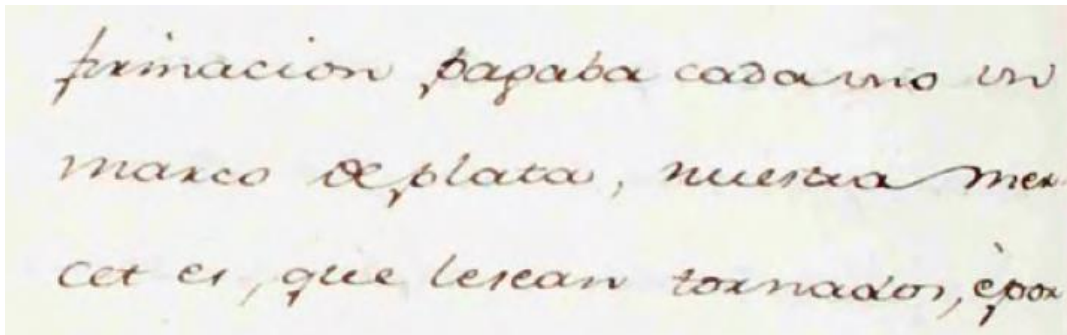 firmacion pagaba cada uno un
marco de plata, nuestra mer-
cet es, que le sean tornados, è por